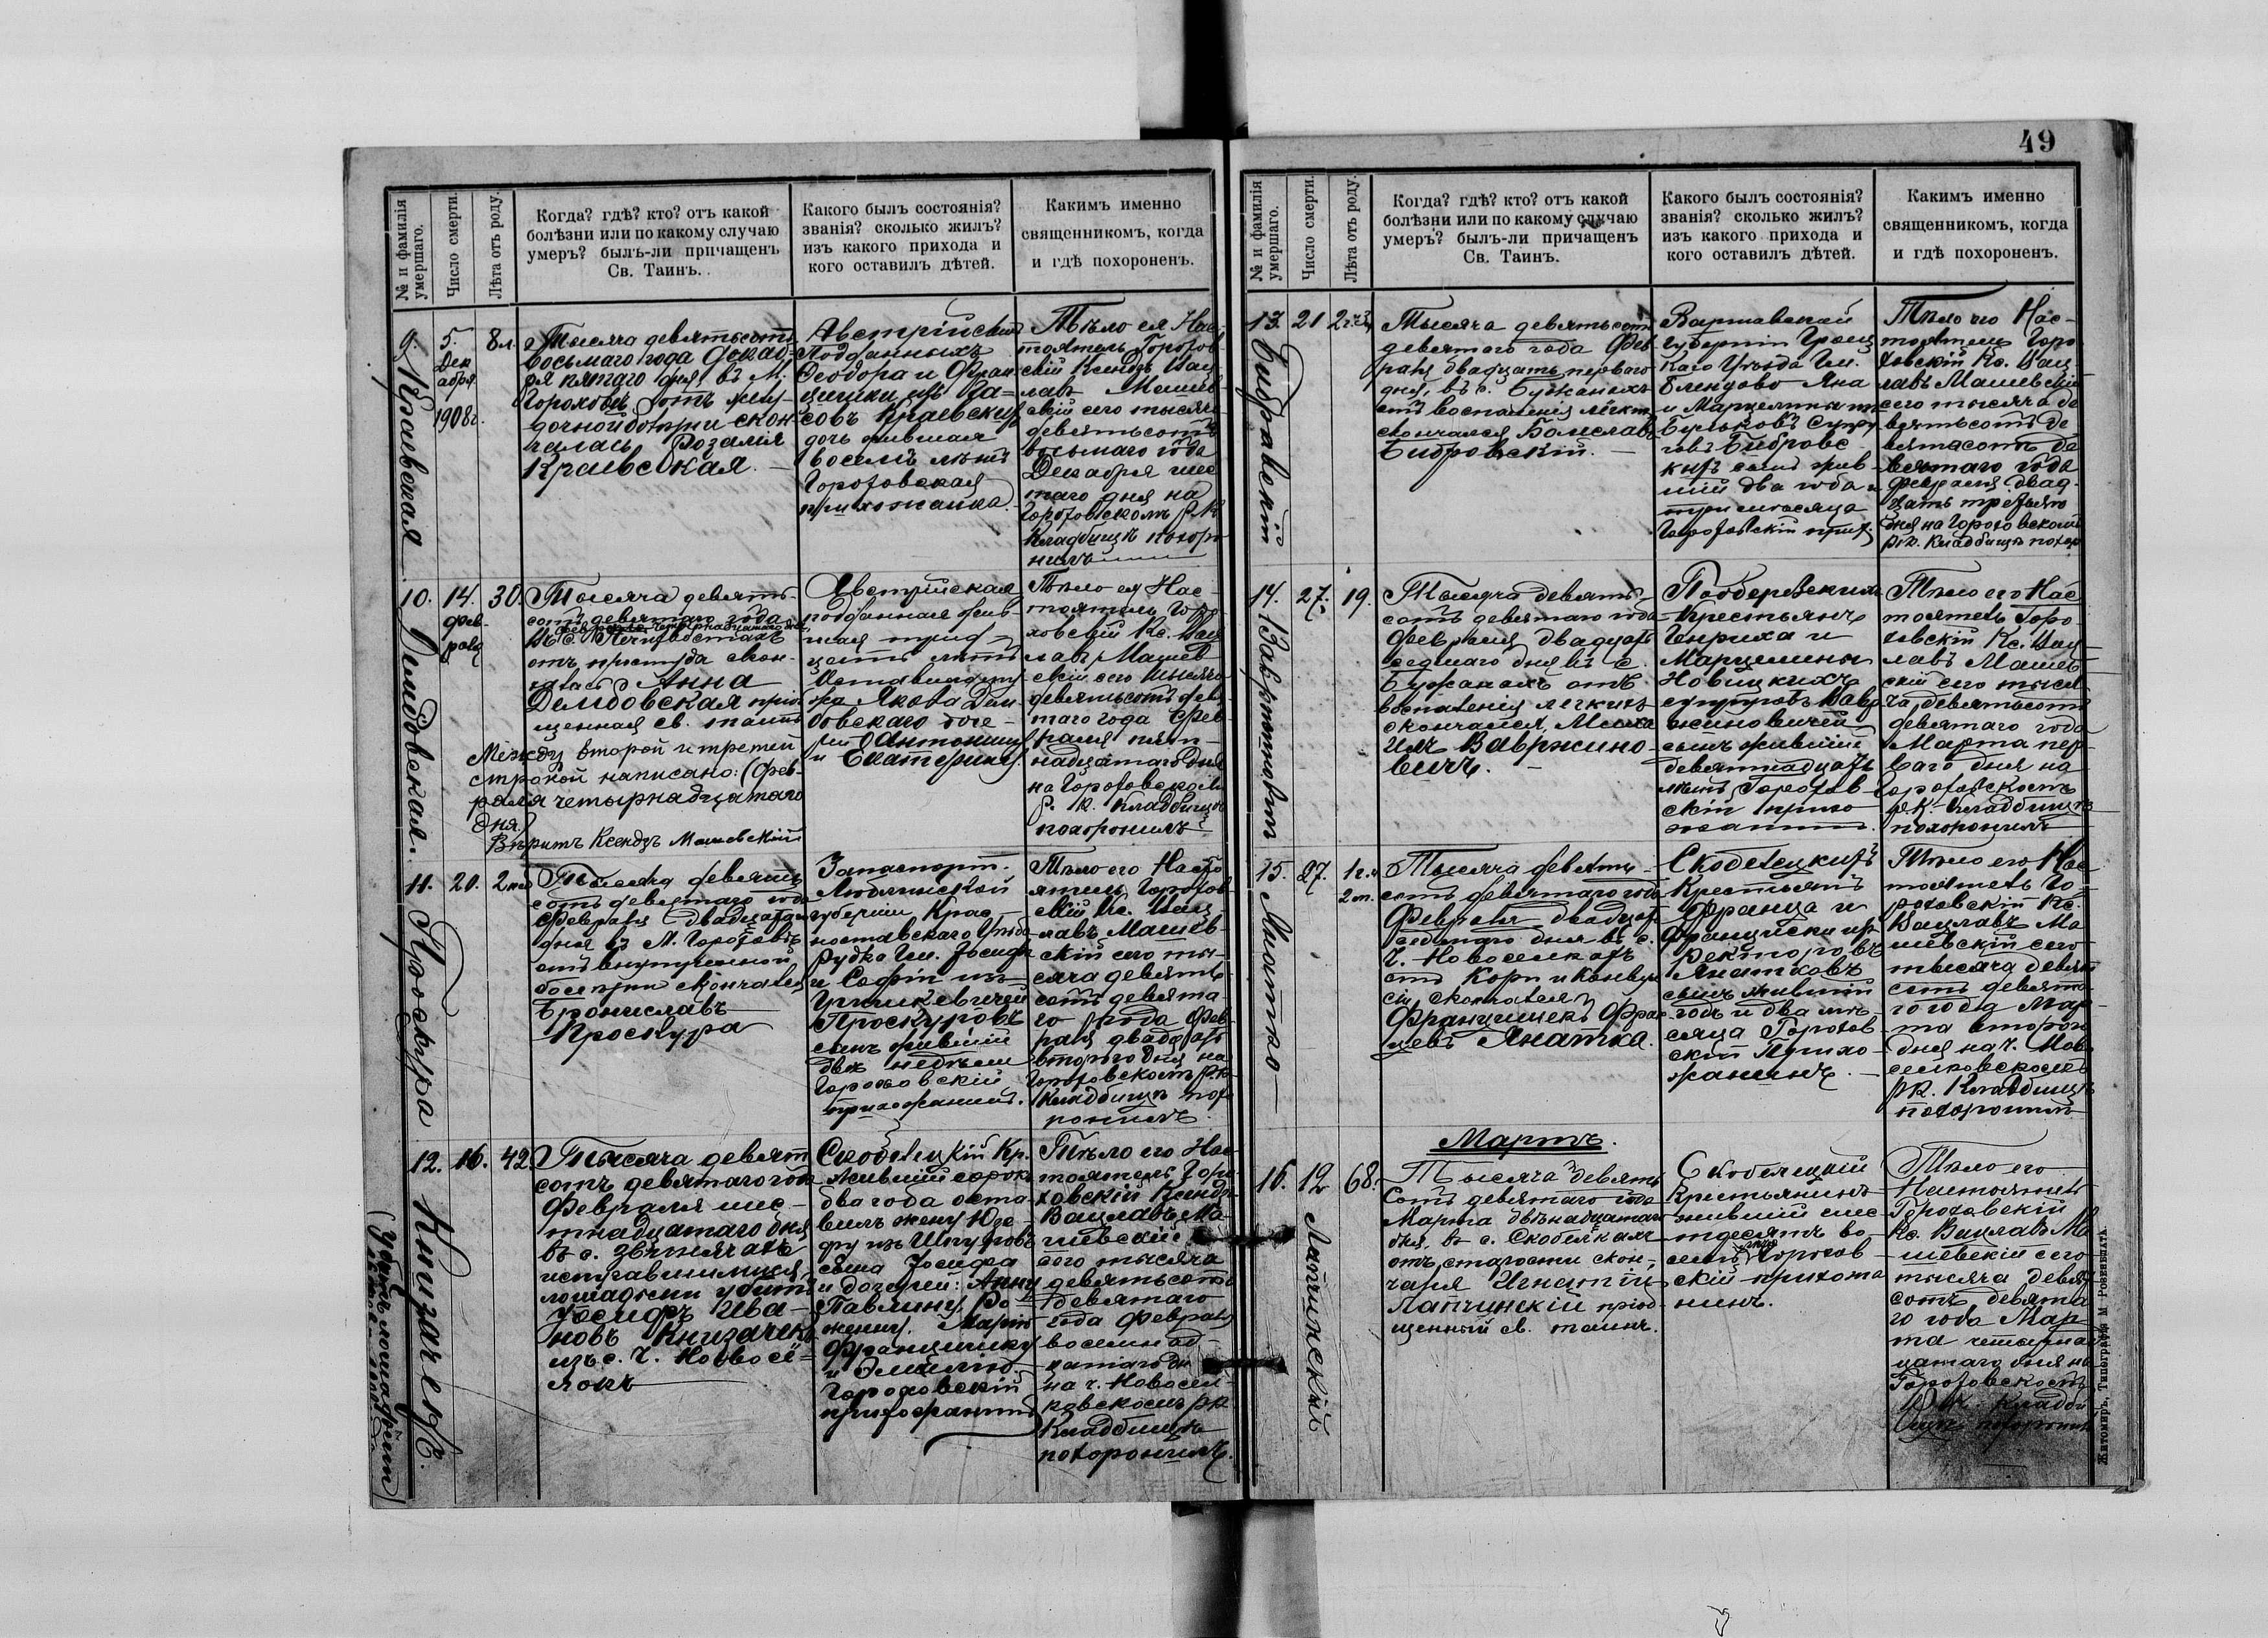 49
№ и фамилія умершаго.
Число смерти.
Лѣта отъ роду.
Когда? гдѣ? кто? отъ какой
болѣзни или по какому случаю
умеръ? былъ-ли причащенъ
Св. Таинъ.
Какого былъ состоянія?
званія? сколько жилъ?
изъ какого прихода и
кого оставилъ дѣтей.
Каким­ъ именно
священникомъ, когда
и гдѣ похороненъ.
9. Краевская
5.
Дек
абря
1908г.
8л.
Тысяча девятьсотъ
восьмаго года Декаб-
ря пятаго дня, въ М.
Гороховѣ отъ
скон-
чалась Розалія
Краевская.
Австрійских
Подданныхъ
Ѳеодора и Фран
цишки изъ
совъ Краевских
дочь жившая
восемь лѣтъ
Гороховская
прихожанка.
Тѣло ея Нас-
тоятель Горохов-
скій Ксендзъ Вац
лавъ Машев-
скій сего тысяча
девятьсотъ
восьмаго года
Декабря шес
таго дня на
Гороховскомъ р.к
Кладбищѣ похоро
нилъ
10. Дембовская.
14.
фев-
раля
30.
Тысяча девять-
сотъ девятаго года
февраля четырнадцатаго дня,
въ с.
отъ простуды скон-
чалась Анна
Дембовская прiоб
щенная св. таинъ
Между второй и третей
строкой написано: (Фев-
раля четырнадцатаго
дня)
Вѣритъ Ксендзъ Машевскій
Австрійская
подданная жив
шая трид-
цать лѣтъ
Оставила му
жа Якова Дем
бовскаго доче-
рей Антонину
и Екатерину
Тѣло ея Нас-
тоятель Горо
ховскій Кс. Вац
лавъ Машев-
скій сего тысяча
девятьсотъ девя
таго года Фев
раля пят-
надцатаго дня
на Гороховскомъ
р. к. Кладбищѣ
похоронилъ
11. Проскура
20.
2 нед
Тысяча девять
сотъ девятаго года
Февраля двадцатаго
дня въ М. Гороховѣ
отъ внутренней
болезни скончался
Брониславъ
Проскура
Люблинской
губерніи Крас-
ноставскаго Уезда
Рудка Гм. Іосифа
и Софіи из
Проскуровъ
сынъ живший
двѣ недѣли
Гороховскій
прихожанинъ.
Тѣло его Насто
ятель Горохов
скій Кс. Вац
лавъ Машев-
скій сего ты-
сяча девять
сотъ девята-
го года Фев
раля двадцать
второго дня на
Гороховскомъ р.к
Кладбищѣ похо
ронилъ
12. Книзачекъ.
16.
42.
Тысяча девят
сотъ девятаго года
Февраля шес-
тнадцатаго дня
въ с. Звѣнячахъ
испугавшимися
лошадьми убитъ
Іосифъ Ива-
новъ Книзачекъ
изъ с. Ч. Новосё-
локъ
Скобелецкій Кр.
живший сорокъ
два года оста
вилъ жену Юзе-
фу изъ
сына Іосифа
и дочерей: Анну
Павлину,
Марію
Францишку
и Эмилію
Гороховскій
прихожанинъ
Тѣло его Нас
тоятель Горо
ховскій Ксендз
Вацлавъ Ма-
шевскій
сего тысяча
девятьсотъ
девятаго
года Февраля
восемнад-
цатаго дн
на ч. Новосел-
ковскомъ р.к
Кладбищѣ
похоронилъ.
13. Бибровскій
21
Тысяча девятьсот
девятаго года Фев
раля двадцать перваго
дня, въ с. Бужанахъ
отъ воспаленія лёгких
скончался Болеславъ
Бибровскій.
Варшавской
губерніи Гроец
каго Уѣзда Гм.
Блендово Яна
и Марцелины из
Бульковъ супру
говъ Бибровс
кихъ сынъ жив-
шій два года и
три месяца
Гороховскій прих.
Тѣло его Нас-
тоятель Горо
ховскій Кс. Вац
лавъ Машевскій
сего тысяча де
вятьсотъ де
вятаго года
февраля двад-
цать третьяго
дня на Гороховскомъ
р.к. Кладбищѣ похор
14. Вавржиновичъ
27.
19.
Тысяча девять-
сотъ девятаго года
Февраля двадцать
седьмаго дня въ с.
Бужанахъ отъ
воспаленія легкихъ
скончался, Миха
илъ Вавржино-
вичъ.
Подберезскихъ
Крестьянъ
Генриха и
Марцелины
Новицкихъ
супруговъ Вавр
жиновичей
сынъ живший
девятнадцать
лѣтъ Горохов-
скій прихо
жанинъ.
Тѣло его Нас
тоятель Горо-
ховскій Кс. Вац
лавъ Машев
скій сего тыся
ча девятьсотъ
девятаго года
Марта пер-
ваго дня на
Гороховскомъ
р.к. Кладбищѣ
похоронилъ
15. Янатко
27.
1г.и
2 м.
Тысяча девять-
сотъ девятаго года
Февраля двадцать
седьмаго дня въ с.
Ч. Новоселкахъ
отъ Кори и Конвул
сіи скончался
Францишекъ Фран
цевъ Янатка.
Скобелецкихъ
Крестьянъ
Франца и
Францишки изъ
Ректоровъ
Янатковъ
сынъ живший
годъ и два мѣ-
сяца Горохов
скій Прихо-
жанинъ.
Тѣло его Нас
тоятель Го
роховскій Кс.
Вацлавъ Ма
шевскій сего
тысяча девять
сотъ девята
го года Мар-
та второго
дня на ч. Ново
селковскомъ
р.к. Кладбищѣ
похоронилъ
Мартъ.
16. Лапчинскій
12
68.
Тысяча девять
сотъ девятаго года
Марта двѣнадцатаго
дня, въ с. Скобелкахъ
отъ старости скон-
чался Игнатій
Лапчинскій пріоб-
щенный св. таинъ.
Скобелецкій
Крестьянинъ
живший шес
тьдесятъ во
семь лѣтъ Горохов-
скій прихожа
нинъ.
Тѣло его
Настоятель
Гороховскій
Кс. Вацлавъ Ма
шевскій сего
тысяча девят
сотъ девята
го года Мар
та четырнад
цатаго дня на
Гороховскомъ
р.к. Кладби
щѣ похоронилъ
Житомиръ, Типографія М. Розенблата.